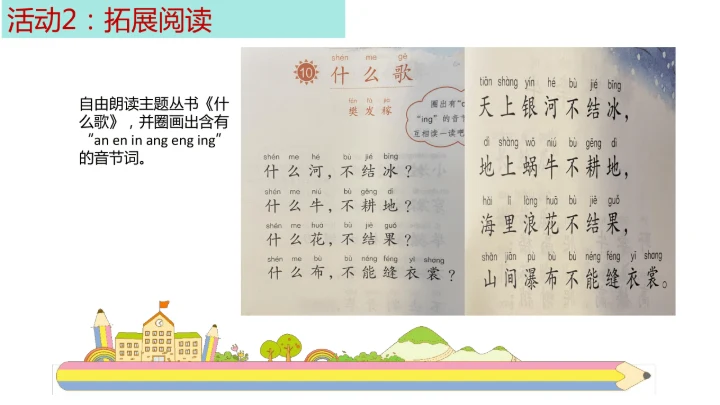 活动2：拓展阅读
自由朗读主题丛书《什
么歌》，并圈画出含有
“an en in ang eng ing”
的音节词。
shén me gē
10 什么歌
fán fā jià
樊发稼
圈出有“
“ing”的音节
互相读一读吧
shén me hé bù jié bīng
什么河，不结冰？
shén me niú bù gēng dì
什么牛，不耕地？
shén me huā bù jiē guǒ
什么花，不结果？
shén me bù bù néng féng yī shang
什么布，不能缝衣裳？
tiān shàng yín hé bù jié bīng
天上银河不结冰，
dì shàng wō niú bù gēng dì
地上蜗牛不耕地，
hǎi lǐ làng huā bù jiē guǒ
海里浪花不结果，
shān jiān pù bù bù néng féng yī shang
山间瀑布不能缝衣裳。